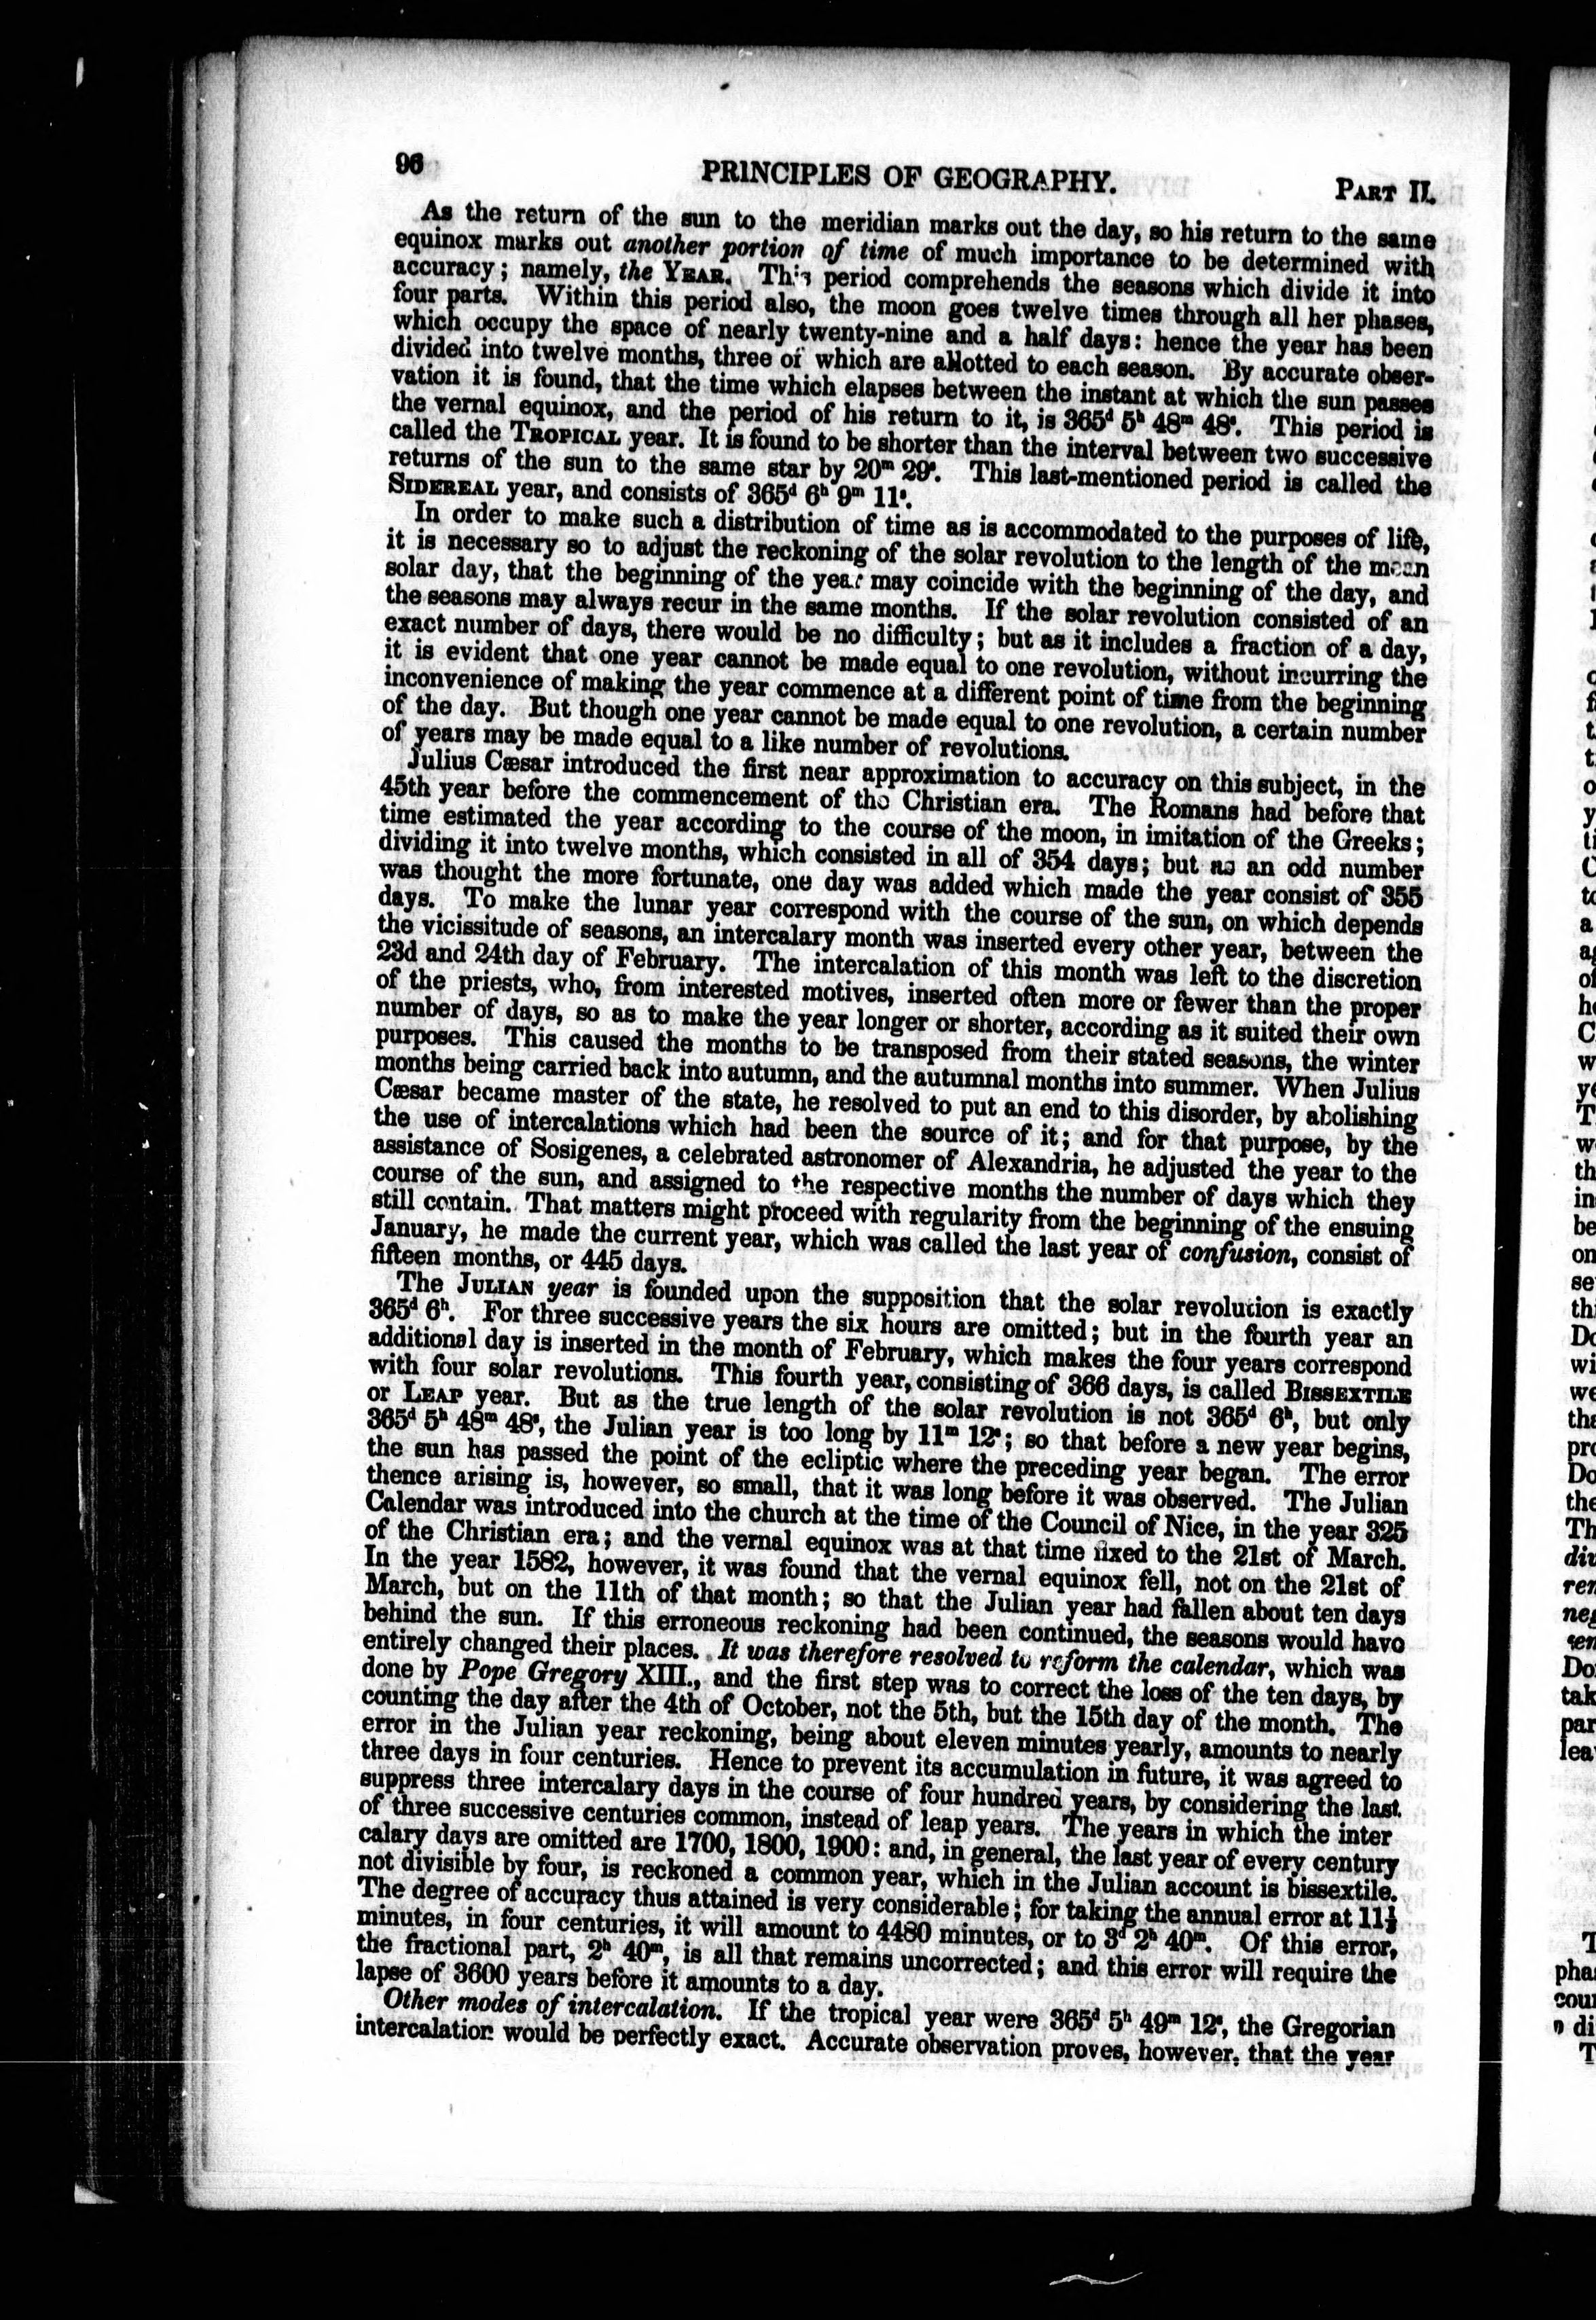 96
PRINCIPLES OF GEOGRAPHY.
PART II.
As the return of the sun to the meridian marks out the day, so his return to the same
equinox marks out another portion of time of much importance to be determined with
accuracy; namely, the YEAR. This period comprehends the seasons which divide it into
four parts. Within this period also, the moon goes twelve times through all her phases,
which occupy the space of nearly twenty-nine and a half days: hence the year has been
divided into twelve months, three of which are allotted to each season. By accurate obser-
vation it is found, that the time which elapses between the instant at which the sun passes
the vernal equinox, and the period of his return to it, is 365ᵈ 5ʰ 48ᵐ 48ˢ. This period is
called the TROPICAL year. It is found to be shorter than the interval between two successive
returns of the sun to the same star by 20ᵐ 29ˢ. This last-mentioned period is called the
SIDEREAL year, and consists of 365ᵈ 6ʰ 9ᵐ 11ˢ.
In order to make such a distribution of time as is accommodated to the purposes of life,
it is necessary so to adjust the reckoning of the solar revolution to the length of the mean
solar day, that the beginning of the year may coincide with the beginning of the day, and
the seasons may always recur in the same months. If the solar revolution consisted of an
exact number of days, there would be no difficulty; but as it includes a fraction of a day,
it is evident that one year cannot be made equal to one revolution, without incurring the
inconvenience of making the year commence at a different point of time from the beginning
of the day. But though one year cannot be made equal to one revolution, a certain number
of years may be made equal to a like number of revolutions.
Julius Cæsar introduced the first near approximation to accuracy on this subject, in the
45th year before the commencement of the Christian era. The Romans had before that
time estimated the year according to the course of the moon, in imitation of the Greeks;
dividing it into twelve months, which consisted in all of 354 days; but as an odd number
was thought the more fortunate, one day was added which made the year consist of 355
days. To make the lunar year correspond with the course of the sun, on which depends
the vicissitude of seasons, an intercalary month was inserted every other year, between the
23d and 24th day of February. The intercalation of this month was left to the discretion
of the priests, who, from interested motives, inserted often more or fewer than the proper
number of days, so as to make the year longer or shorter, according as it suited their own
purposes. This caused the months to be transposed from their stated seasons, the winter
months being carried back into autumn, and the autumnal months into summer. When Julius
Cæsar became master of the state, he resolved to put an end to this disorder, by abolishing
the use of intercalations which had been the source of it; and for that purpose, by the
assistance of Sosigenes, a celebrated astronomer of Alexandria, he adjusted the year to the
course of the sun, and assigned to the respective months the number of days which they
still contain. That matters might proceed with regularity from the beginning of the ensuing
January, he made the current year, which was called the last year of confusion, consist of
fifteen months, or 445 days.
The JULIAN year is founded upon the supposition that the solar revolution is exactly
365ᵈ 6ʰ. For three successive years the six hours are omitted; but in the fourth year an
additional day is inserted in the month of February, which makes the four years correspond
with four solar revolutions. This fourth year, consisting of 366 days, is called BISSEXTILE
or LEAP year. But as the true length of the solar revolution is not 365ᵈ 6ʰ, but only
365ᵈ 5ʰ 48ᵐ 48ˢ, the Julian year is too long by 11ᵐ 12ˢ; so that before a new year begins,
the sun has passed the point of the ecliptic where the preceding year began. The error
thence arising is, however, so small, that it was long before it was observed. The Julian
Calendar was introduced into the church at the time of the Council of Nice, in the year 325
of the Christian era; and the vernal equinox was at that time fixed to the 21st of March.
In the year 1582, however, it was found that the vernal equinox fell, not on the 21st of
March, but on the 11th of that month; so that the Julian year had fallen about ten days
behind the sun. If this erroneous reckoning had been continued, the seasons would have
entirely changed their places. It was therefore resolved to reform the calendar, which was
done by Pope Gregory XIII., and the first step was to correct the loss of the ten days, by
counting the day after the 4th of October, not the 5th, but the 15th day of the month. The
error in the Julian year reckoning, being about eleven minutes yearly, amounts to nearly
three days in four centuries. Hence to prevent its accumulation in future, it was agreed to
suppress three intercalary days in the course of four hundred years, by considering the last
of three successive centuries common, instead of leap years. The years in which the inter
calary days are omitted are 1700, 1800, 1900: and, in general, the last year of every century
not divisible by four, is reckoned a common year, which in the Julian account is bissextile.
The degree of accuracy thus attained is very considerable; for taking the annual error at 11⅕
minutes, in four centuries, it will amount to 4480 minutes, or to 3ᵈ 2ʰ 40ᵐ. Of this error,
the fractional part, 2ʰ 40ᵐ, is all that remains uncorrected; and this error will require the
lapse of 3600 years before it amounts to a day.
Other modes of intercalation. If the tropical year were 365ᵈ 5ʰ 49ᵐ 12ˢ, the Gregorian
intercalation would be perfectly exact. Accurate observation proves, however, that the year